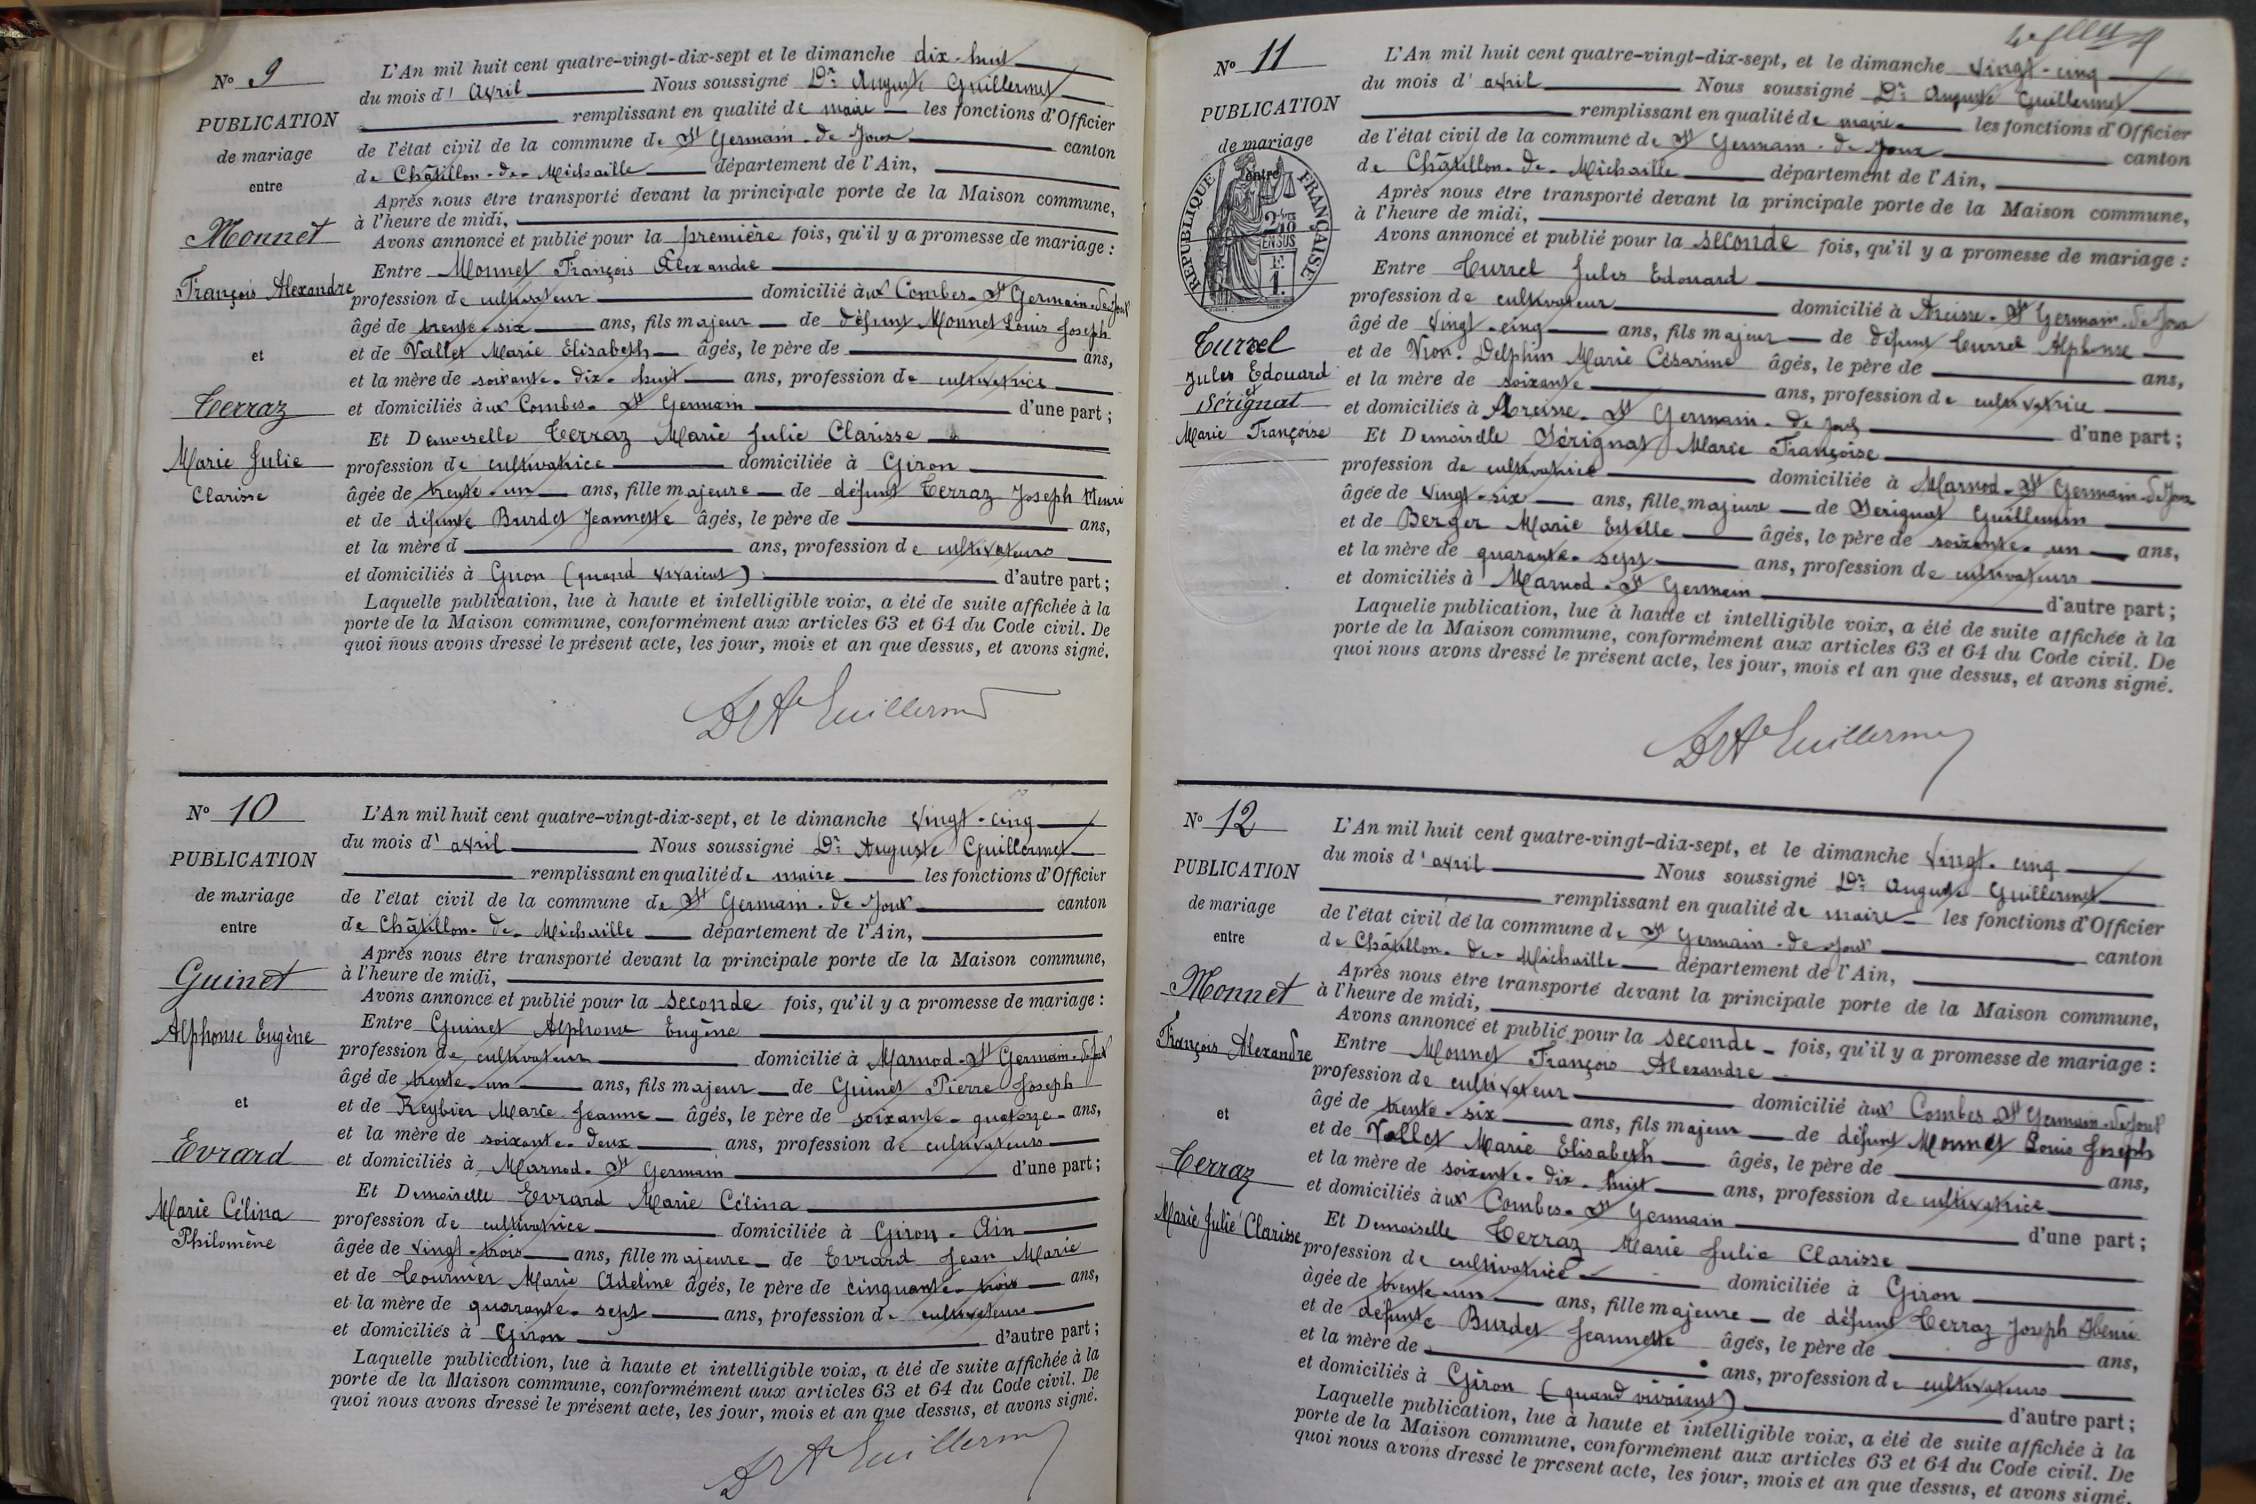 N° 9
PUBLICATION
de mariage
entre
Monnet
François Alexandre
et
Terraz
Marie Julie
Clarisse
L'An mil huit cent quatre-vingt-dix-sept et le dimanche dix-huit
du mois d'Avril Nous soussigné Dr Auguste Guillermet
remplissant en qualité de maire les fonctions d'Officier
de l'état civil de la commune de St Germain-de-Joux canton
de Châtillon-de-Michaille département de l'Ain,
Après nous être transporté devant la principale porte de la Maison commune,
à l'heure de midi,
Avons annoncé et publié pour la première fois, qu'il y a promesse de mariage :
Entre Monnet François Alexandre
profession de cultivateur domicilié aux Combes-St Germain-de-Joux
âgé de trente-six ans, fils majeur de défunt Monnet Louis Joseph
et de Vallet Marie Elisabeth âgés, le père de ans,
et la mère de soixante-dix-huit ans, profession de cultivatrice
et domiciliés aux Combes-St Germain d'une part ;
Et Demoiselle Terraz Marie Julie Clarisse
profession de cultivatrice domiciliée à Giron
âgée de trente-un ans, fille majeure de défunt Terraz Joseph Henri
et de défunte Burdet Jeannette âgés, le père de ans,
et la mère d ans, profession de cultivateurs
et domiciliés à Giron (quand vivaient) d'autre part ;
Laquelle publication, lue à haute et intelligible voix, a été de suite affichée à la
porte de la Maison commune, conformément aux articles 63 et 64 du Code civil. De
quoi nous avons dressé le présent acte, les jour, mois et an que dessus, et avons signé.
Dr Ate Guillermet
N° 10
PUBLICATION
de mariage
entre
Guinet
Alphonse Eugène
et
Evrard
Marie Célina
Philomène
L'An mil huit cent quatre-vingt-dix-sept, et le dimanche vingt-cinq
du mois d'avril Nous soussigné Dr Auguste Guillermet
remplissant en qualité de maire les fonctions d'Officier
de l'état civil de la commune de St Germain-de-Joux canton
de Châtillon-de-Michaille département de l'Ain,
Après nous être transporté devant la principale porte de la Maison commune,
à l'heure de midi,
Avons annoncé et publié pour la seconde fois, qu'il y a promesse de mariage :
Entre Guinet Alphonse Eugène
profession de cultivateur domicilié à Marnod-St Germain-de-Joux
âgé de trente-un ans, fils majeur de Guinet Pierre Joseph
et de Reybier Marie Jeanne âgés, le père de soixante-quatorze ans,
et la mère de soixante-deux ans, profession de cultivateurs
et domiciliés à Marnod-St Germain d'une part ;
Et Demoiselle Evrard Marie Célina
profession de cultivatrice domiciliée à Giron-Ain
âgée de vingt-trois ans, fille majeure de Evrard Jean Marie
et de Tournier Marie Adeline âgés, le père de cinquante-trois ans,
et la mère de quarante-sept ans, profession de cultivateurs
et domiciliés à Giron d'autre part ;
Laquelle publication, lue à haute et intelligible voix, a été de suite affichée à la
porte de la Maison commune, conformément aux articles 63 et 64 du Code civil. De
quoi nous avons dressé le présent acte, les jour, mois et an que dessus, et avons signé.
Dr Ate Guillermet
N° 11
PUBLICATION
de mariage
entre
RÉPUBLIQUE FRANÇAISE
2/10 EN SUS
Turrel
Jules Edouard
et
Sérignat
Marie Françoise
L'An mil huit cent quatre-vingt-dix-sept, et le dimanche vingt-cinq
du mois d'avril Nous soussigné Dr Auguste Guillermet
remplissant en qualité de maire les fonctions d'Officier
de l'état civil de la commune de St Germain-de-Joux canton
de Châtillon-de-Michaille département de l'Ain,
Après nous être transporté devant la principale porte de la Maison commune,
à l'heure de midi,
Avons annoncé et publié pour la seconde fois, qu'il y a promesse de mariage :
Entre Turrel Jules Edouard
profession de cultivateur domicilié à St Germain-de-Joux
âgé de vingt-cinq ans, fils majeur de défunt Turrel Alphonse
et de Vion-Delphin Marie Césarine âgés, le père de ans,
et la mère de soixante ans, profession de cultivatrice
et domiciliés à St Germain-de-Joux d'une part ;
Et Demoiselle Sérignat Marie Françoise
profession de cultivatrice domiciliée à Marnod-St Germain-de-Joux
âgée de vingt-six ans, fille majeure de Sérignat Guillemin
et de Berger Marie Estelle âgés, le père de soixante-un ans,
et la mère de quarante-sept ans, profession de cultivateurs
et domiciliés à Marnod-St Germain d'autre part ;
Laquelle publication, lue à haute et intelligible voix, a été de suite affichée à la
porte de la Maison commune, conformément aux articles 63 et 64 du Code civil. De
quoi nous avons dressé le présent acte, les jour, mois et an que dessus, et avons signé.
Dr Ate Guillermet
N° 12
PUBLICATION
de mariage
entre
Monnet
François Alexandre
et
Terraz
Marie Julie Clarisse
L'An mil huit cent quatre-vingt-dix-sept, et le dimanche vingt-cinq
du mois d'avril Nous soussigné Dr Auguste Guillermet
remplissant en qualité de maire les fonctions d'Officier
de l'état civil de la commune de St Germain-de-Joux canton
de Châtillon-de-Michaille département de l'Ain,
Après nous être transporté devant la principale porte de la Maison commune,
à l'heure de midi,
Avons annoncé et publié pour la seconde fois, qu'il y a promesse de mariage :
Entre Monnet François Alexandre
profession de cultivateur domicilié aux Combes St Germain-de-Joux
âgé de trente-six ans, fils majeur de défunt Monnet Louis Joseph
et de Vallet Marie Elisabeth âgés, le père de ans,
et la mère de soixante-dix-huit ans, profession de cultivatrice
et domiciliés aux Combes-St Germain d'une part ;
Et Demoiselle Terraz Marie Julie Clarisse
profession de cultivatrice domiciliée à Giron
âgée de trente-un ans, fille majeure de défunt Terraz Joseph Henri
et de défunte Burdet Jeannette âgés, le père de ans,
et la mère de ans, profession de cultivateurs
et domiciliés à Giron (quand vivaient) d'autre part ;
Laquelle publication, lue à haute et intelligible voix, a été de suite affichée à la
porte de la Maison commune, conformément aux articles 63 et 64 du Code civil. De
quoi nous avons dressé le présent acte, les jour, mois et an que dessus, et avons signé.